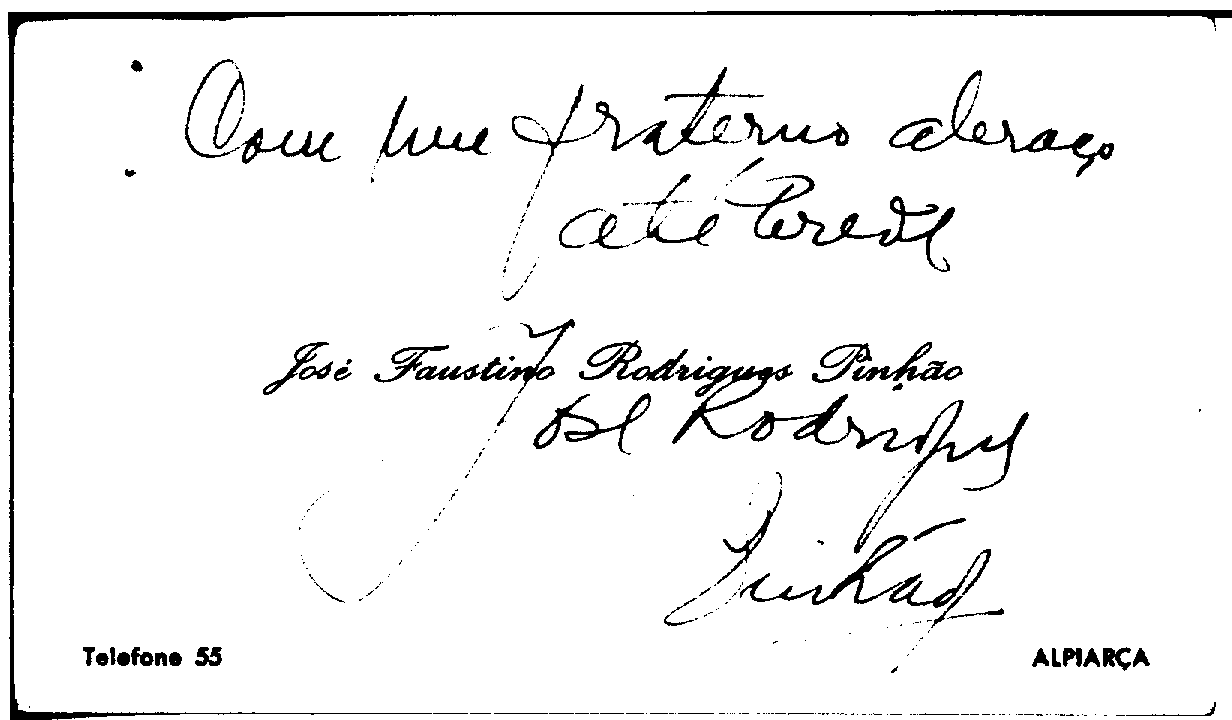 Com um fraterno abraço
até breve
José Faustino Rodrigues Pinhão
José Rodrigues
Pinhão
Telefone 55
ALPIARÇA